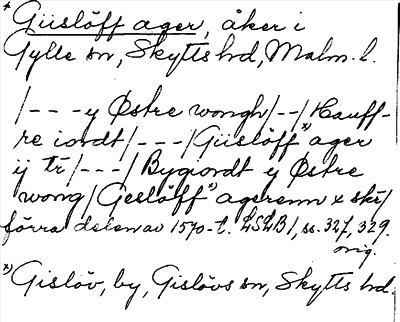 * Giislöff ager, åker i
Gylle sn, Skytts hd, Malm. l.
/---y Østre wongh/--/Hauff-
re iordt/---/Giislöff x) ager
ij tr/---/Bygiordt y Østre
wong/Geslöff x) agerenn x sk/
förra delen av 1570-t. LSLB 1, ss. 327, 329.
orig.
x) Gislöv, by, Gislövs sn, Skytts hd.